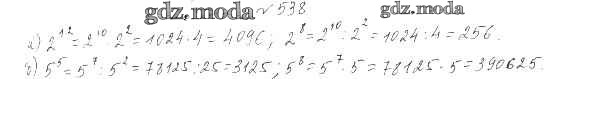 gdz.moda № 538 gdz.moda
а) 2¹² = 2¹⁰ · 2² = 1024 · 4 = 4096; 2⁸ = 2¹⁰ : 2² = 1024 : 4 = 256.
б) 5⁵ = 5⁷ : 5² = 78125 : 25 = 3125; 5⁸ = 5⁷ · 5 = 78125 · 5 = 390625.